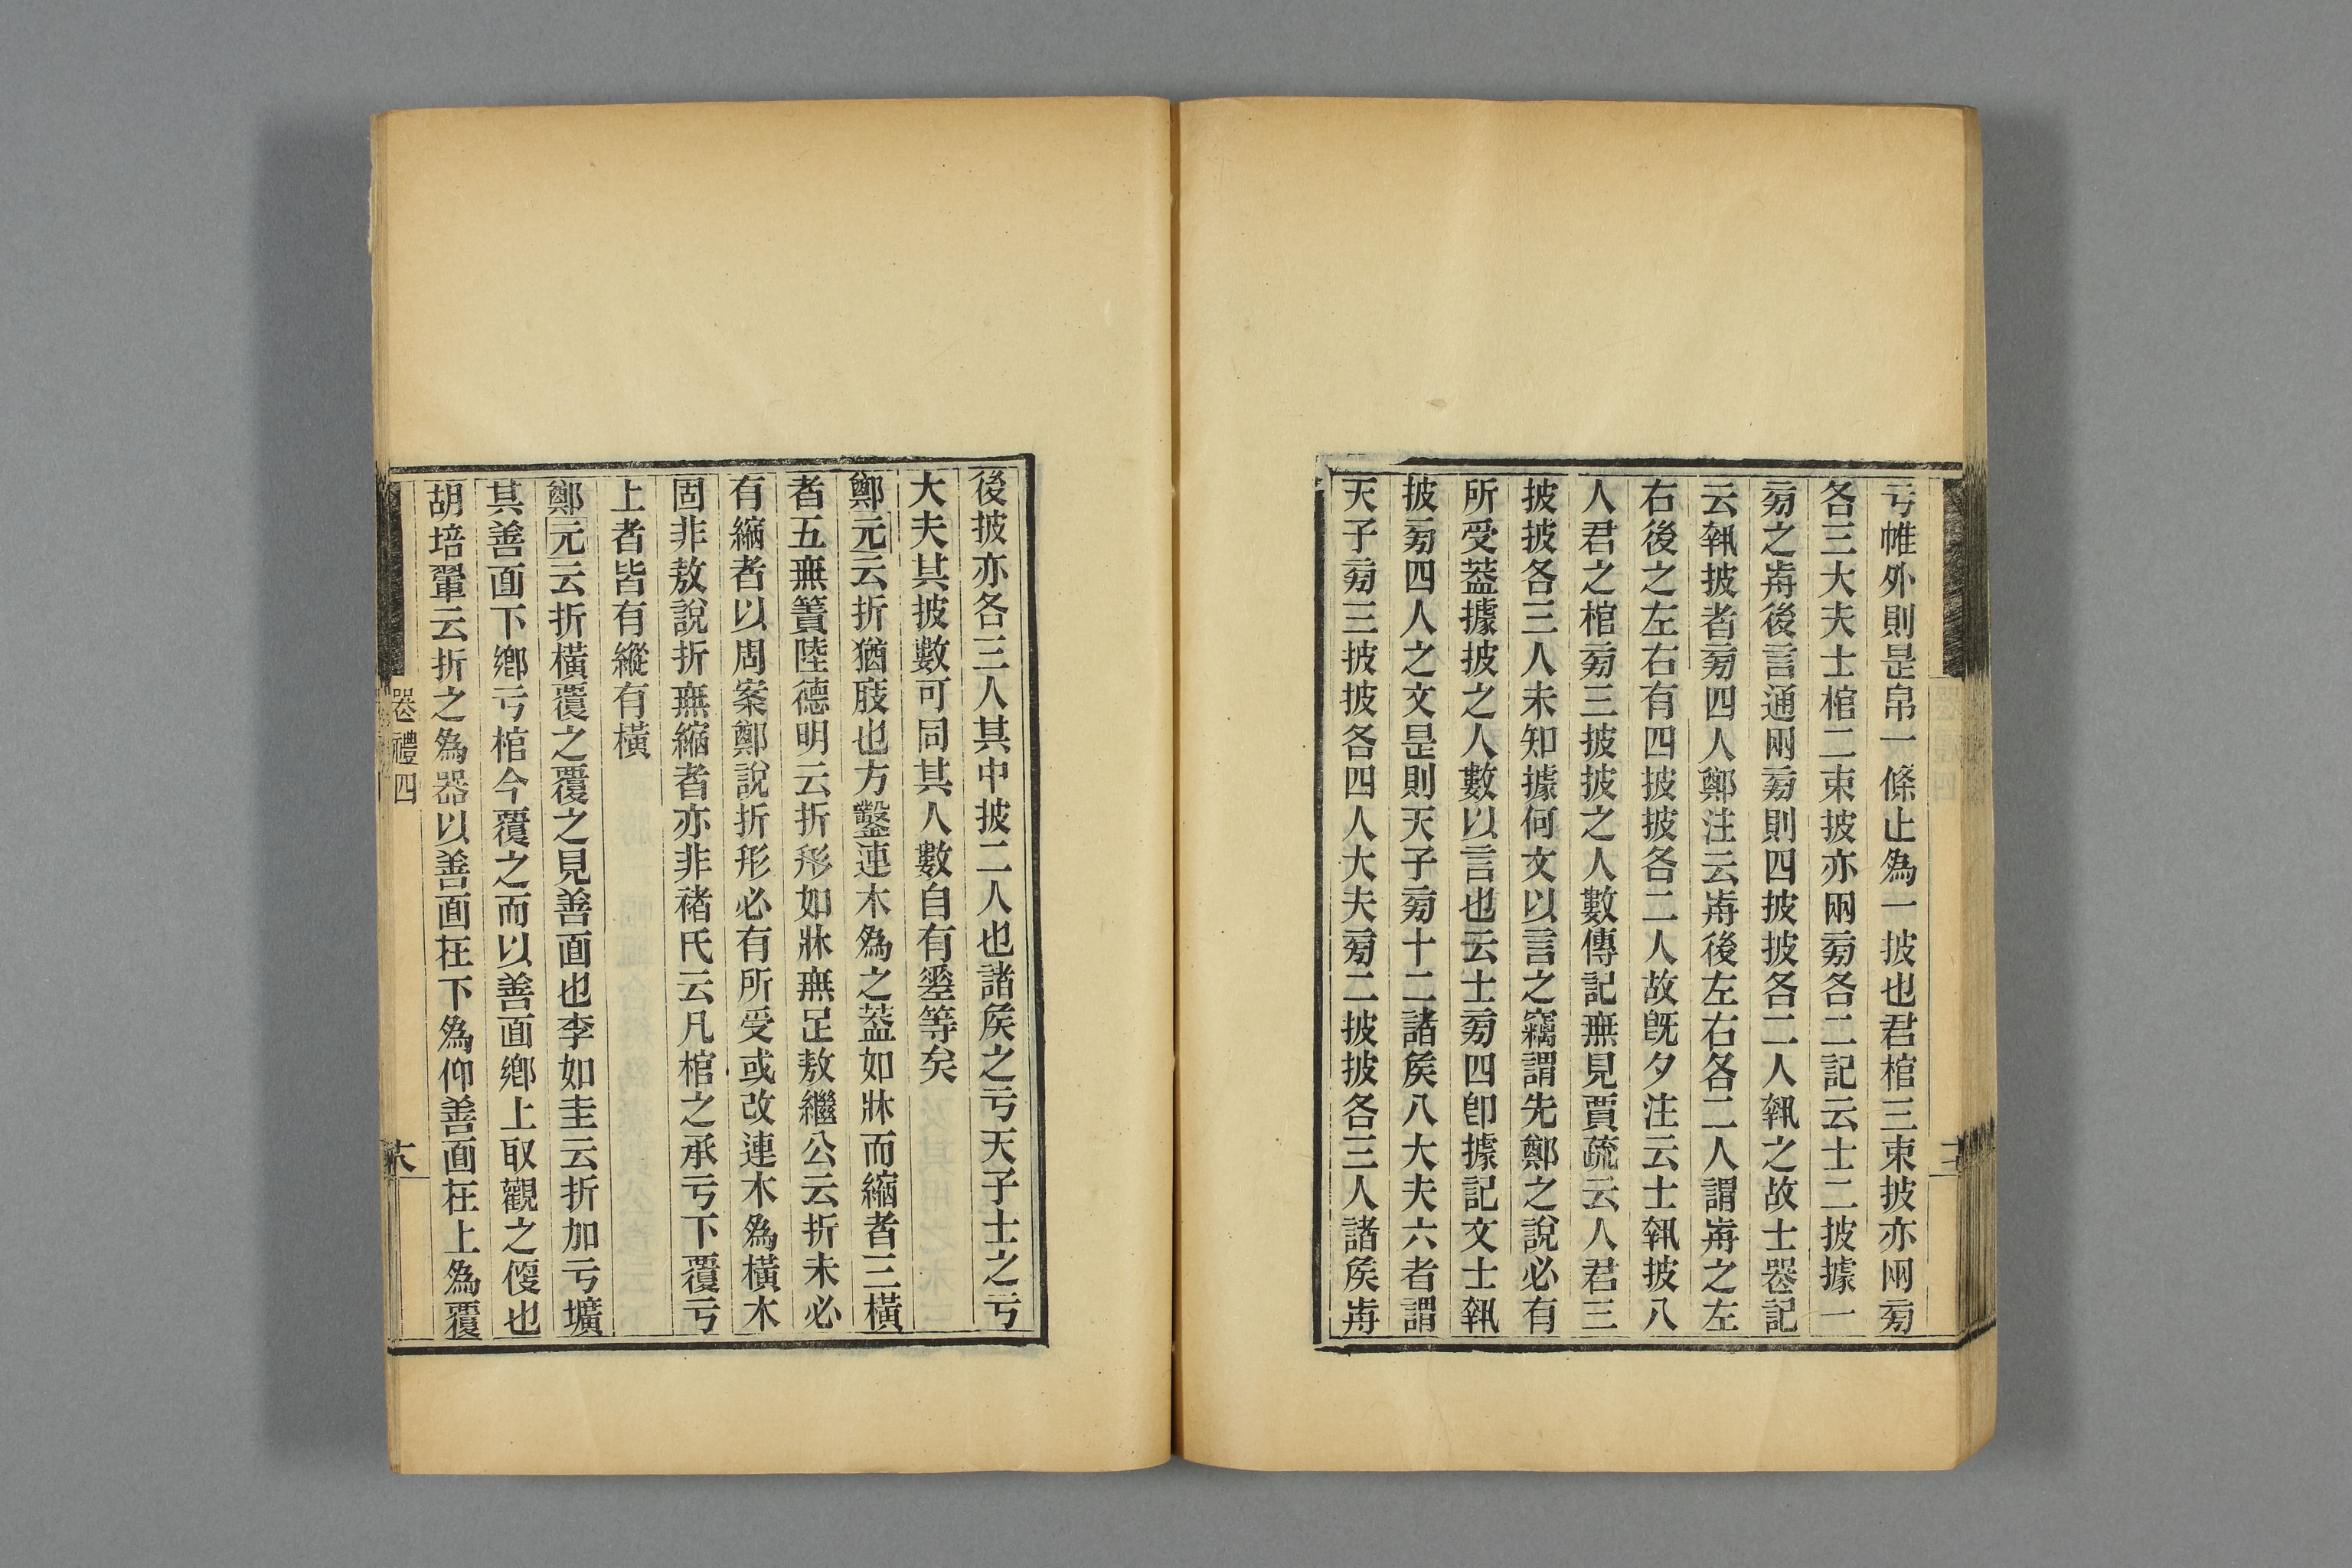 亏帷外則是帛一條止爲一披也君棺三束披亦兩㫄
各三大夫士棺二束披亦兩㫄各二記云士二披據一
㫄之歬後言通兩㫄則四披披各二人執之故士喪記
云執披者㫄四人鄭注云歬後左右各二人謂歬之左
右後之左右有四披披各二人故旣夕注云士執披八
人君之棺㫄三披披之人數傳記無見賈疏云人君三
披披各三人未知據何文以言之竊謂先鄭之說必有
所受葢據披之人數以言也云士㫄四卽據記文士執
披㫄四人之文是則天子㫄十二諸矦八大夫六者謂
天子㫄三披披各四人大夫㫄二披披各三人諸矦歬
後披亦各三人其中披二人也諸矦之亏天子士之亏
大夫其披數可同其人數自有㢀等矣
鄭元云折猶庪也方鑿連木爲之葢如牀而縮者三橫
者五無簀陸德明云折形如牀無足敖繼公云折未必
有縮者以周案鄭說折形必有所受或改連木爲橫木
固非敖說折無縮者亦非褚氏云凡棺之承亏下覆亏
上者皆有縱有橫
鄭元云折橫覆之覆之見善面也李如圭云折加亏壙
其善面下鄉亏棺今覆之而以善面鄉上取觀之㑄也
胡培翬云折之爲器以善面在下爲仰善面在上爲覆
喪禮四